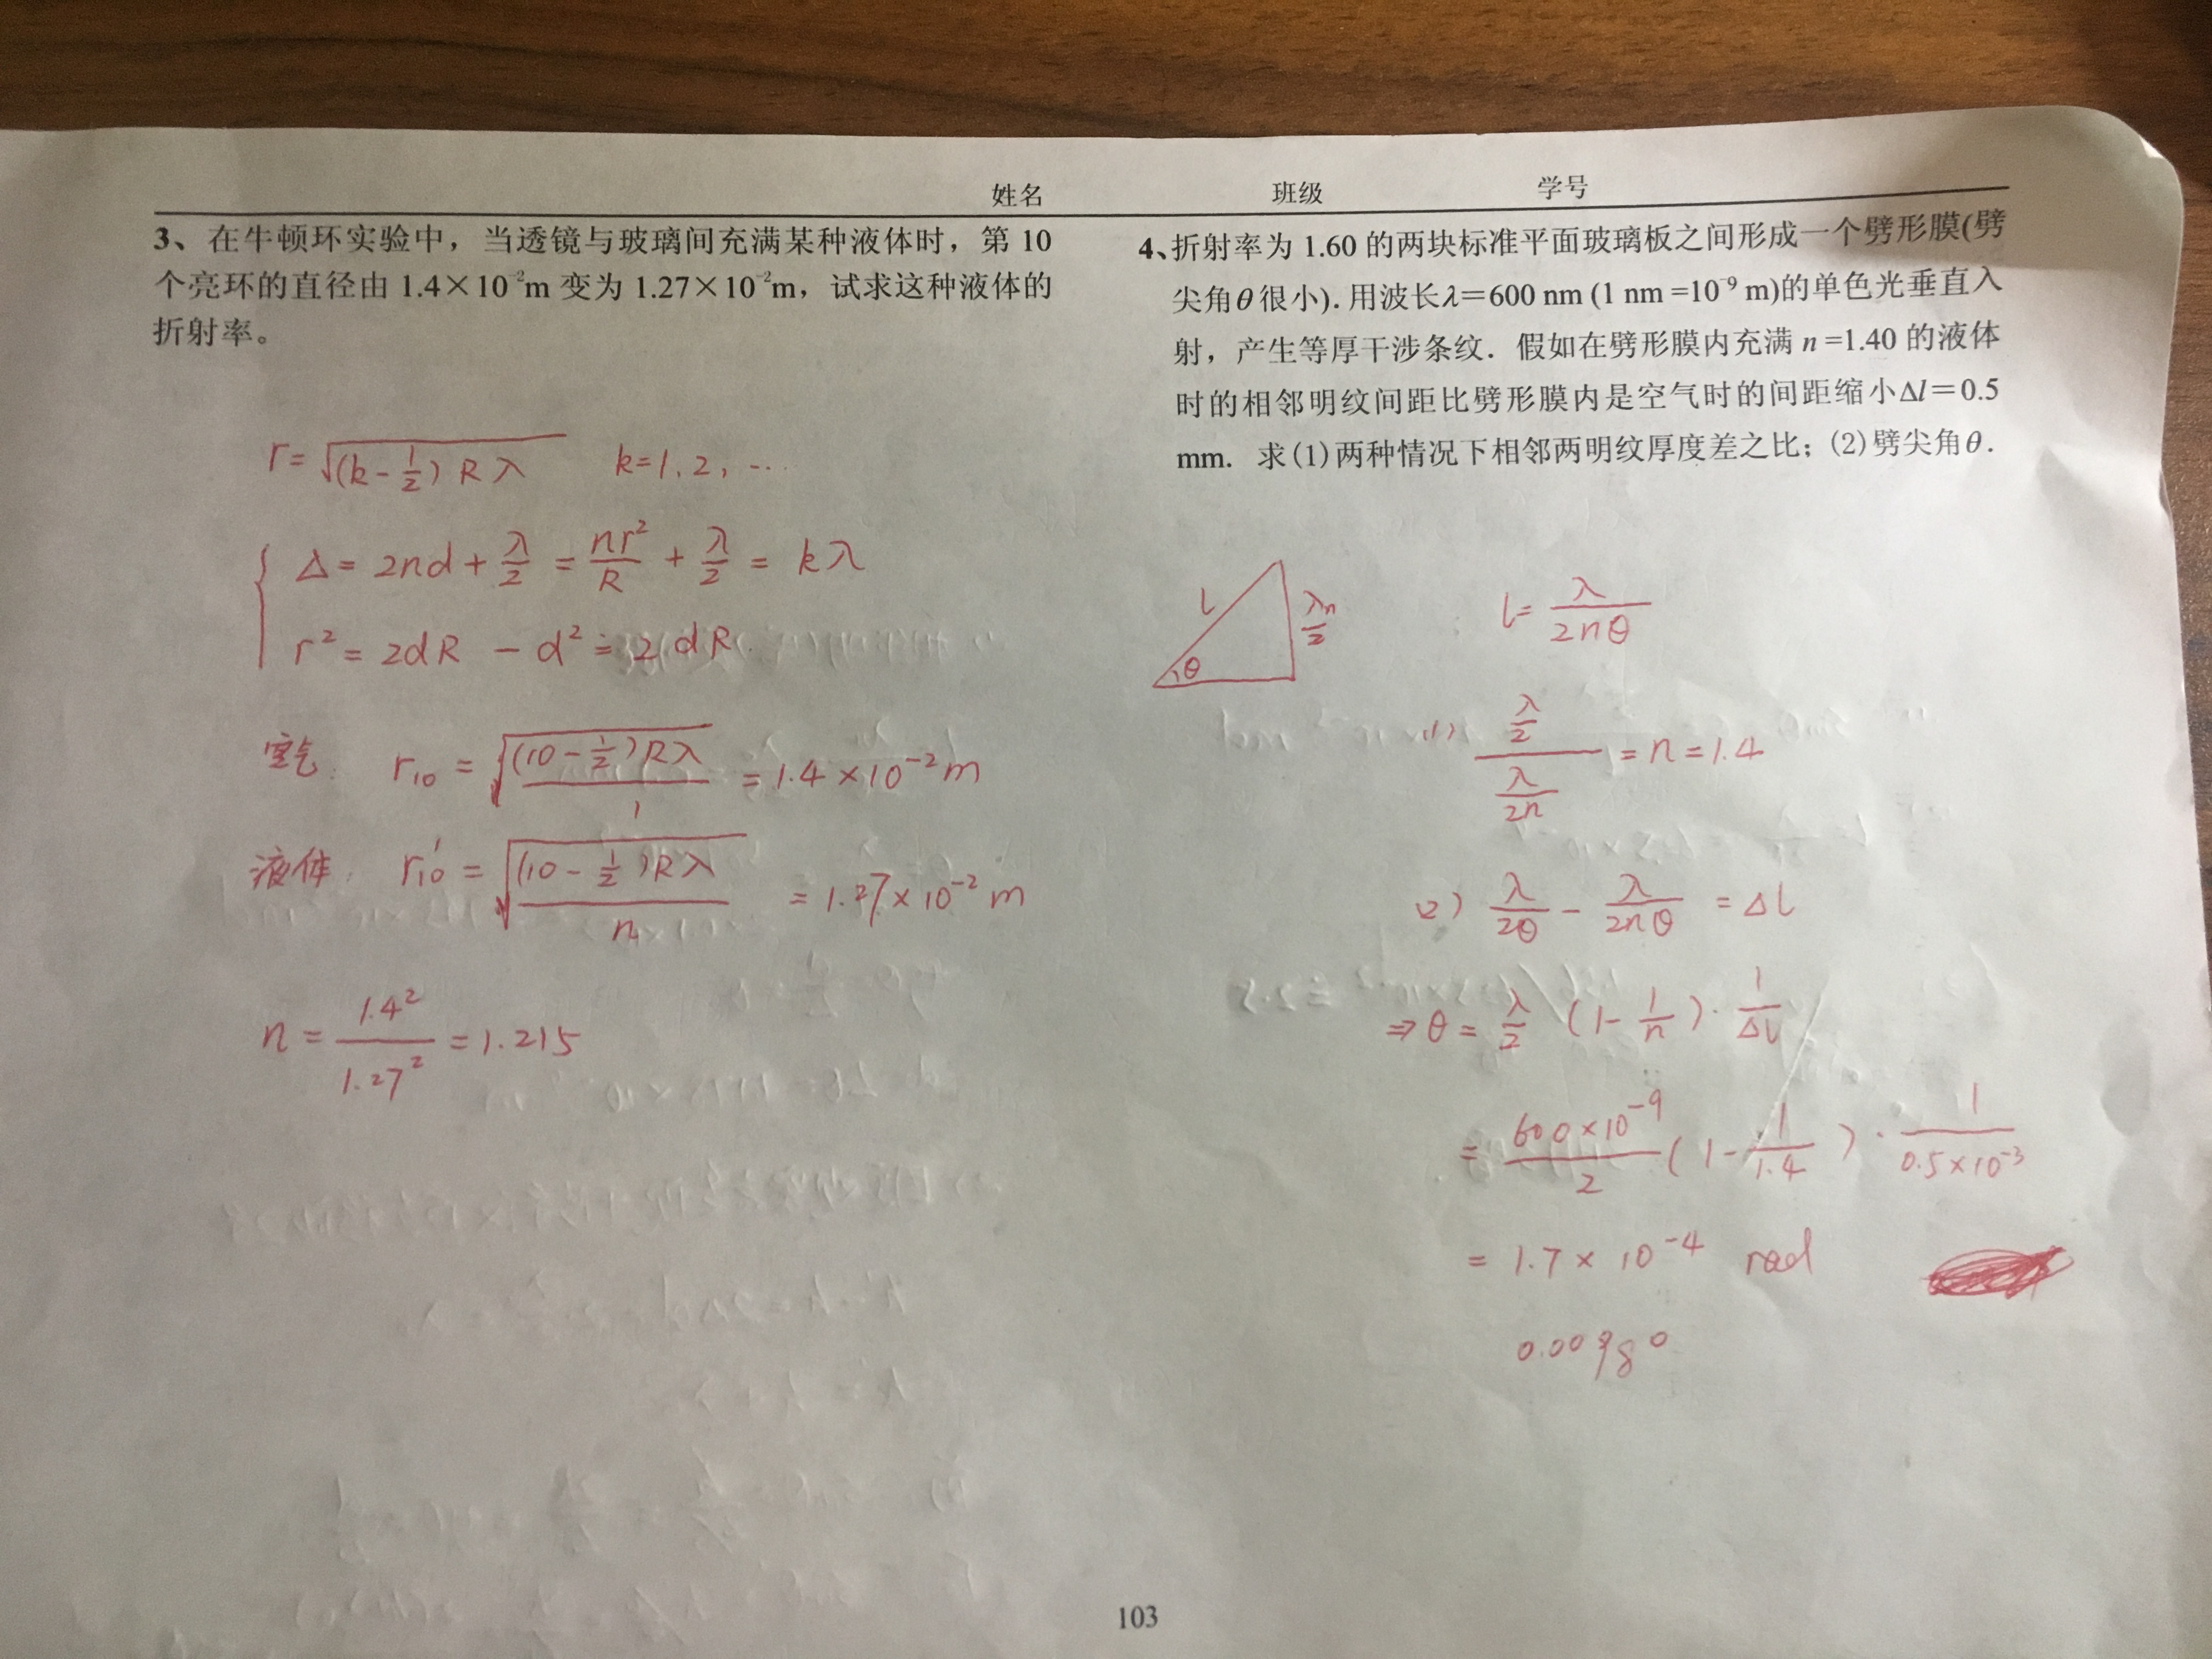 姓名 班级 学号
3、在牛顿环实验中，当透镜与玻璃间充满某种液体时，第 10
个亮环的直径由 1.4×10⁻²m 变为 1.27×10⁻²m，试求这种液体的
折射率。
r = √((k - 1/2) R λ) k=1, 2, …
Δ = 2nd + λ/2 = nr²/R + λ/2 = kλ
r² = 2dR - d² = 2dR
空气 r₁₀ = √((10 - 1/2)Rλ / 1) = 1.4 × 10⁻² m
液体 r₁₀' = √((10 - 1/2)Rλ / n) = 1.27 × 10⁻² m
n = 1.4² / 1.27² = 1.215
4、折射率为 1.60 的两块标准平面玻璃板之间形成一个劈形膜(劈
尖角θ很小). 用波长λ＝600 nm (1 nm =10⁻⁹ m)的单色光垂直入
射，产生等厚干涉条纹．假如在劈形膜内充满 n =1.40 的液体
时的相邻明纹间距比劈形膜内是空气时的间距缩小Δl＝0.5
mm. 求(1)两种情况下相邻两明纹厚度差之比；(2)劈尖角θ.
l θ λn/2 l = λ/2nθ
(1) (λ/2) / (λ/2n) = n = 1.4
(2) λ/2θ - λ/2nθ = Δl
⇒ θ = λ/2 (1 - 1/n) · 1/Δl
= 600×10⁻⁹/2 (1 - 1/1.4) · 1/(0.5×10⁻³)
= 1.7 × 10⁻⁴ rad
0.0098°
103